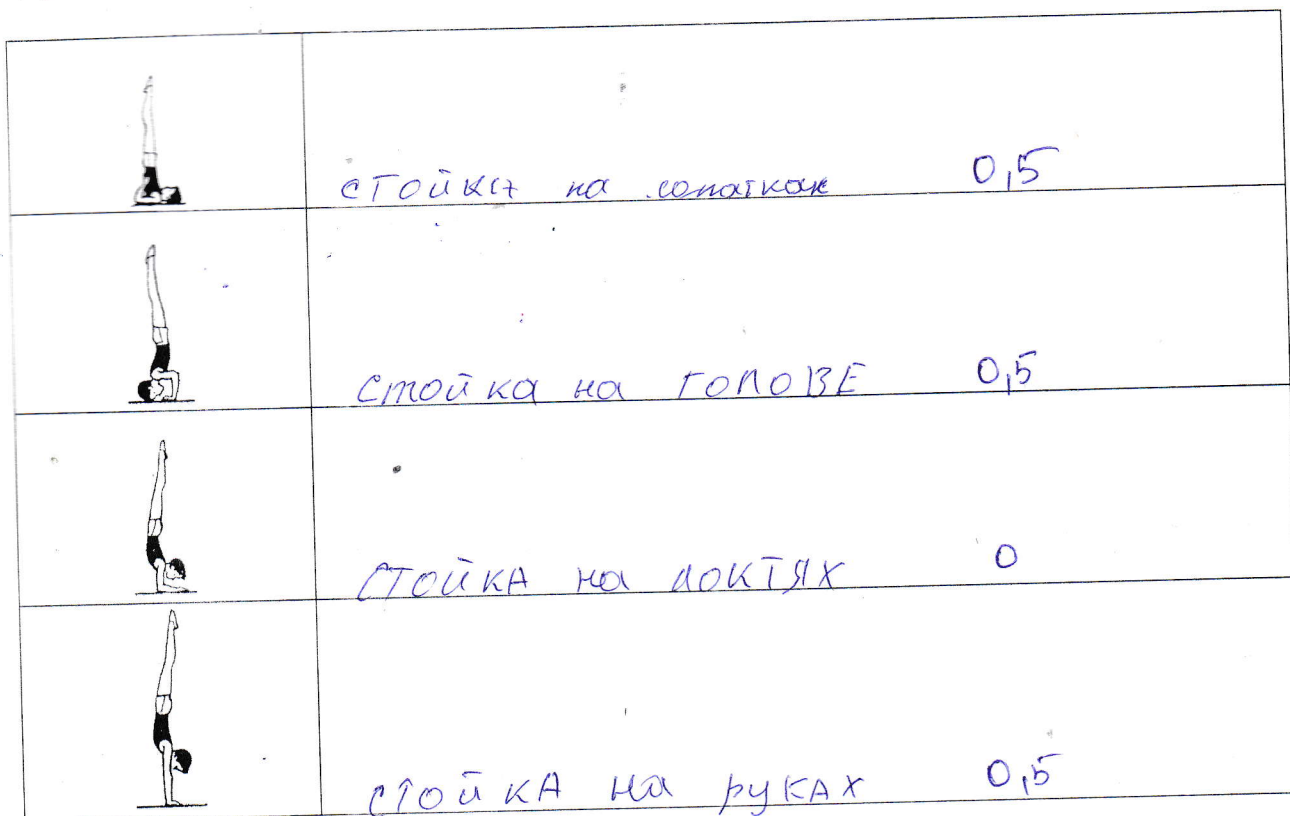 стойка на лопатках 0,5
стойка на ГОЛОВЕ 0,5
СТОЙКА на ЛОКТЯХ 0
СТОЙКА на рукАХ 0,5